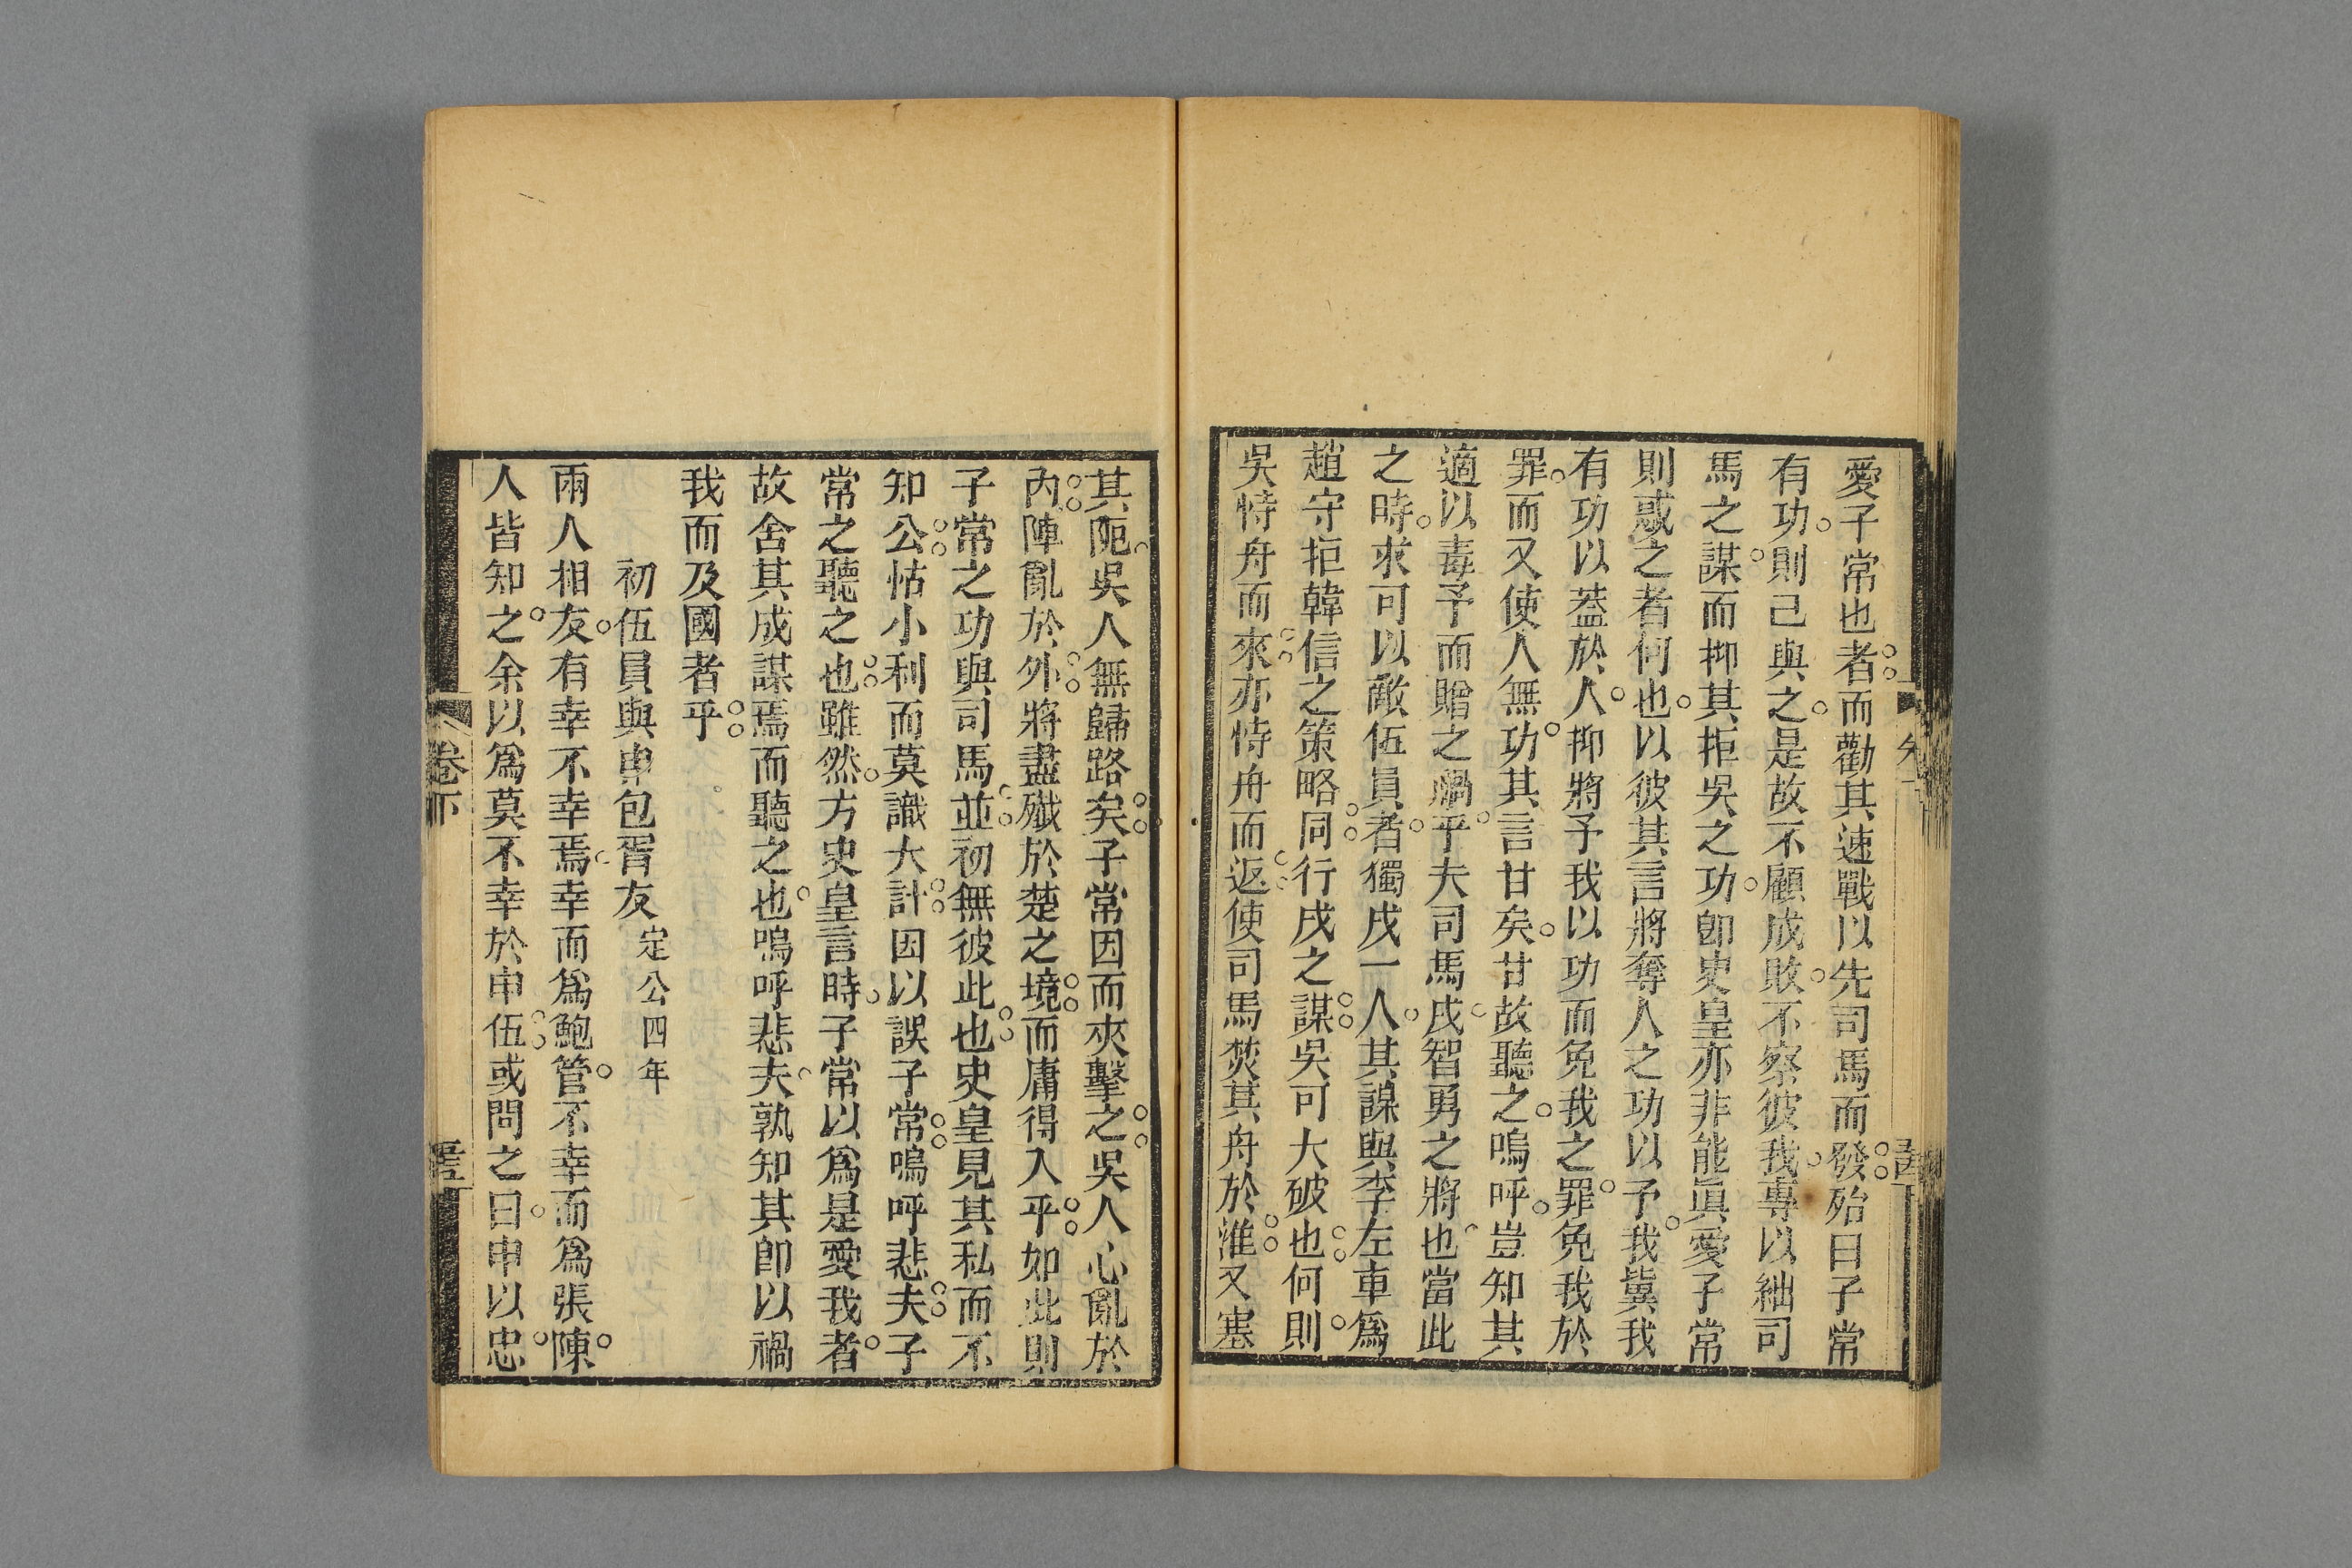 愛子常也者而勸其速戰以先司馬而發殆曰子常
有功則己與之是故不顧成敗不察彼我專以絀司
馬之謀而抑其拒吳之功卽史皇亦非能眞愛子常
則惑之者何也以彼其言將奪人之功以予我冀我
有功以葢於人抑將予我以功而免我之罪免我於
罪而又使人無功其言甘矣甘故聽之嗚呼豈知其
適以毒予而贈之禍乎夫司馬戌智勇之將也當此
之時求可以敵伍員者獨戌一人其謀與李左車爲
趙守拒韓信之策略同行戌之謀吳可大破也何則
吳恃舟而來亦恃舟而返使司馬焚其舟於淮又塞
其阨吳人無歸路矣子常因而夾擊之吳人心亂於
內陣亂於外將盡殲於楚之境而庸得入乎如此則
子常之功與司馬並初無彼此也史皇見其私而不
知公怙小利而莫識大計因以誤子常嗚呼悲夫子
常之聽之也雖然方史皇言時子常以爲是愛我者
故舍其成謀焉而聽之也嗚呼悲夫孰知其卽以禍
我而及國者乎
初伍員與申包胥友 定公四年
兩人相友有幸不幸焉幸而爲鮑管不幸而爲張陳
人皆知之余以爲莫不幸於申伍或問之曰申以忠
卷下